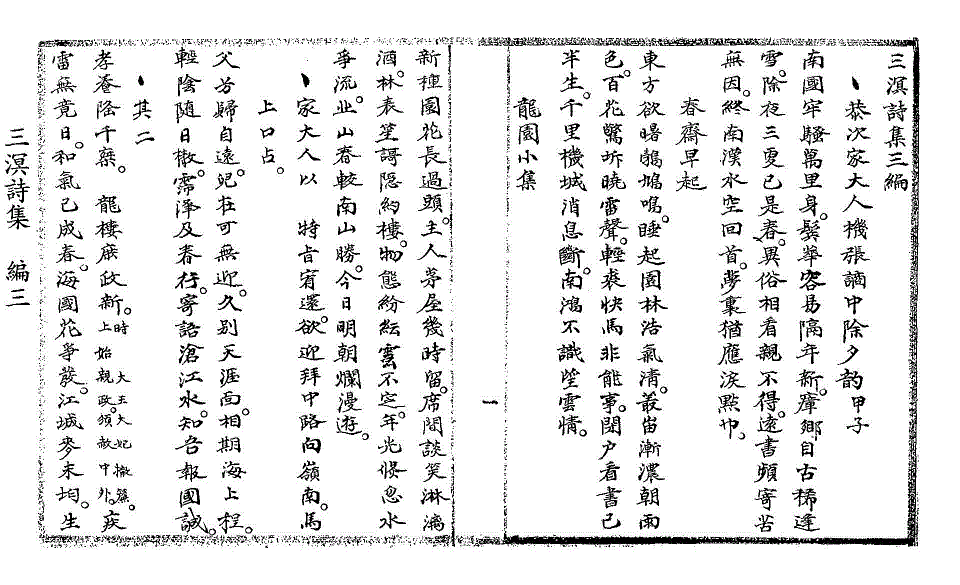 三溟詩集三編
丶恭次家大人機張謫中除夕韵甲子
南國牢騷萬里身。鬂華容易隔年新。瘴鄕自古稀逢
雪。除夜三更已是春。異俗相看親不得。遠書頻寄苦
無因。終南漢水空回首。夢裏猶應淚點巾。
春齋早起
東方欲曙鵓鳩鳴。睡起園林浩氣淸。叢笛漸濃朝雨
色。百花驚坼曉雷聲。輕裘快馬非能事。閉户看書已
半生。千里機城消息斷。南鴻不識望雲情。
龍園小集
一
新種園花長過頭。主人茅屋幾時留。席間談笑淋漓
酒。林表笙謌隱約樓。物態紛紜雲不定。年光倏忽水
爭流。北山春較南山勝。今日明朝爛漫遊。
丶家大人以 特旨宥還。欲迎拜中路向嶺南。馬
上口占。
父兮歸自遠。兒在可無迎。久别天涯面。相期海上程。
輕陰隨日撤。霈澤及春行。寄語滄江水。知吾報國誠。
丶其二
孝養隆千藥。 龍樓庶政新。時 大王大妃撤簾。上始親政。頒赦中外。疾
雷無竟日。和氣已成春。海國花爭發。江城麥未均。生
三溟詩集 編三